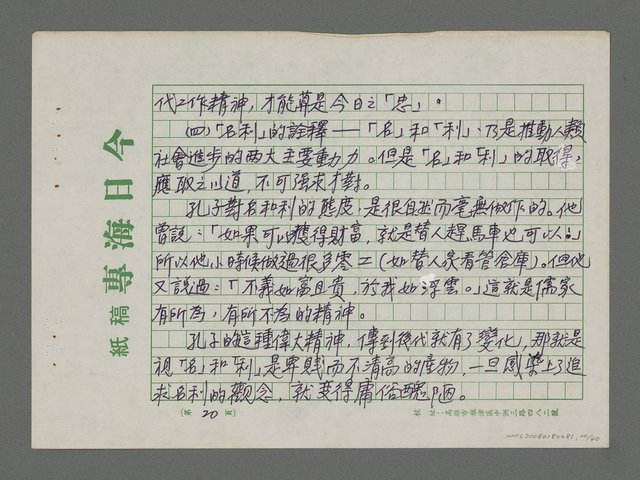 代工作精神，才能算是今日之「忠」。
(四)「名利」的詮釋——「名」和「利」，乃是推動人類
社會進步的兩大主要動力。但是「名」和「利」的取得，
應取之以道，不可强求才對。
孔子對名和利的態度，是很自然而毫無做作的。他
曾説：「如果可以獲得財富，就是替人趕馬車也可以。」
所以他小時候做過很多零工(如替人家看管倉庫)。但他
又説過：「不義如富且貴，於我如浮雲。」這就是儒家
有所為，有所不為的精神。
孔子的這種偉大精神，傳到後代就有了變化，那就是
視「名」和「利」是卑賤而不清高的產物，一旦感染上了追
求名利的觀念，就變得庸俗醜陋。
今日海專
稿紙
(第 20 頁)
校 址：高雄市旗津區中洲三路四八二號
NMTL20080180281, 20/40